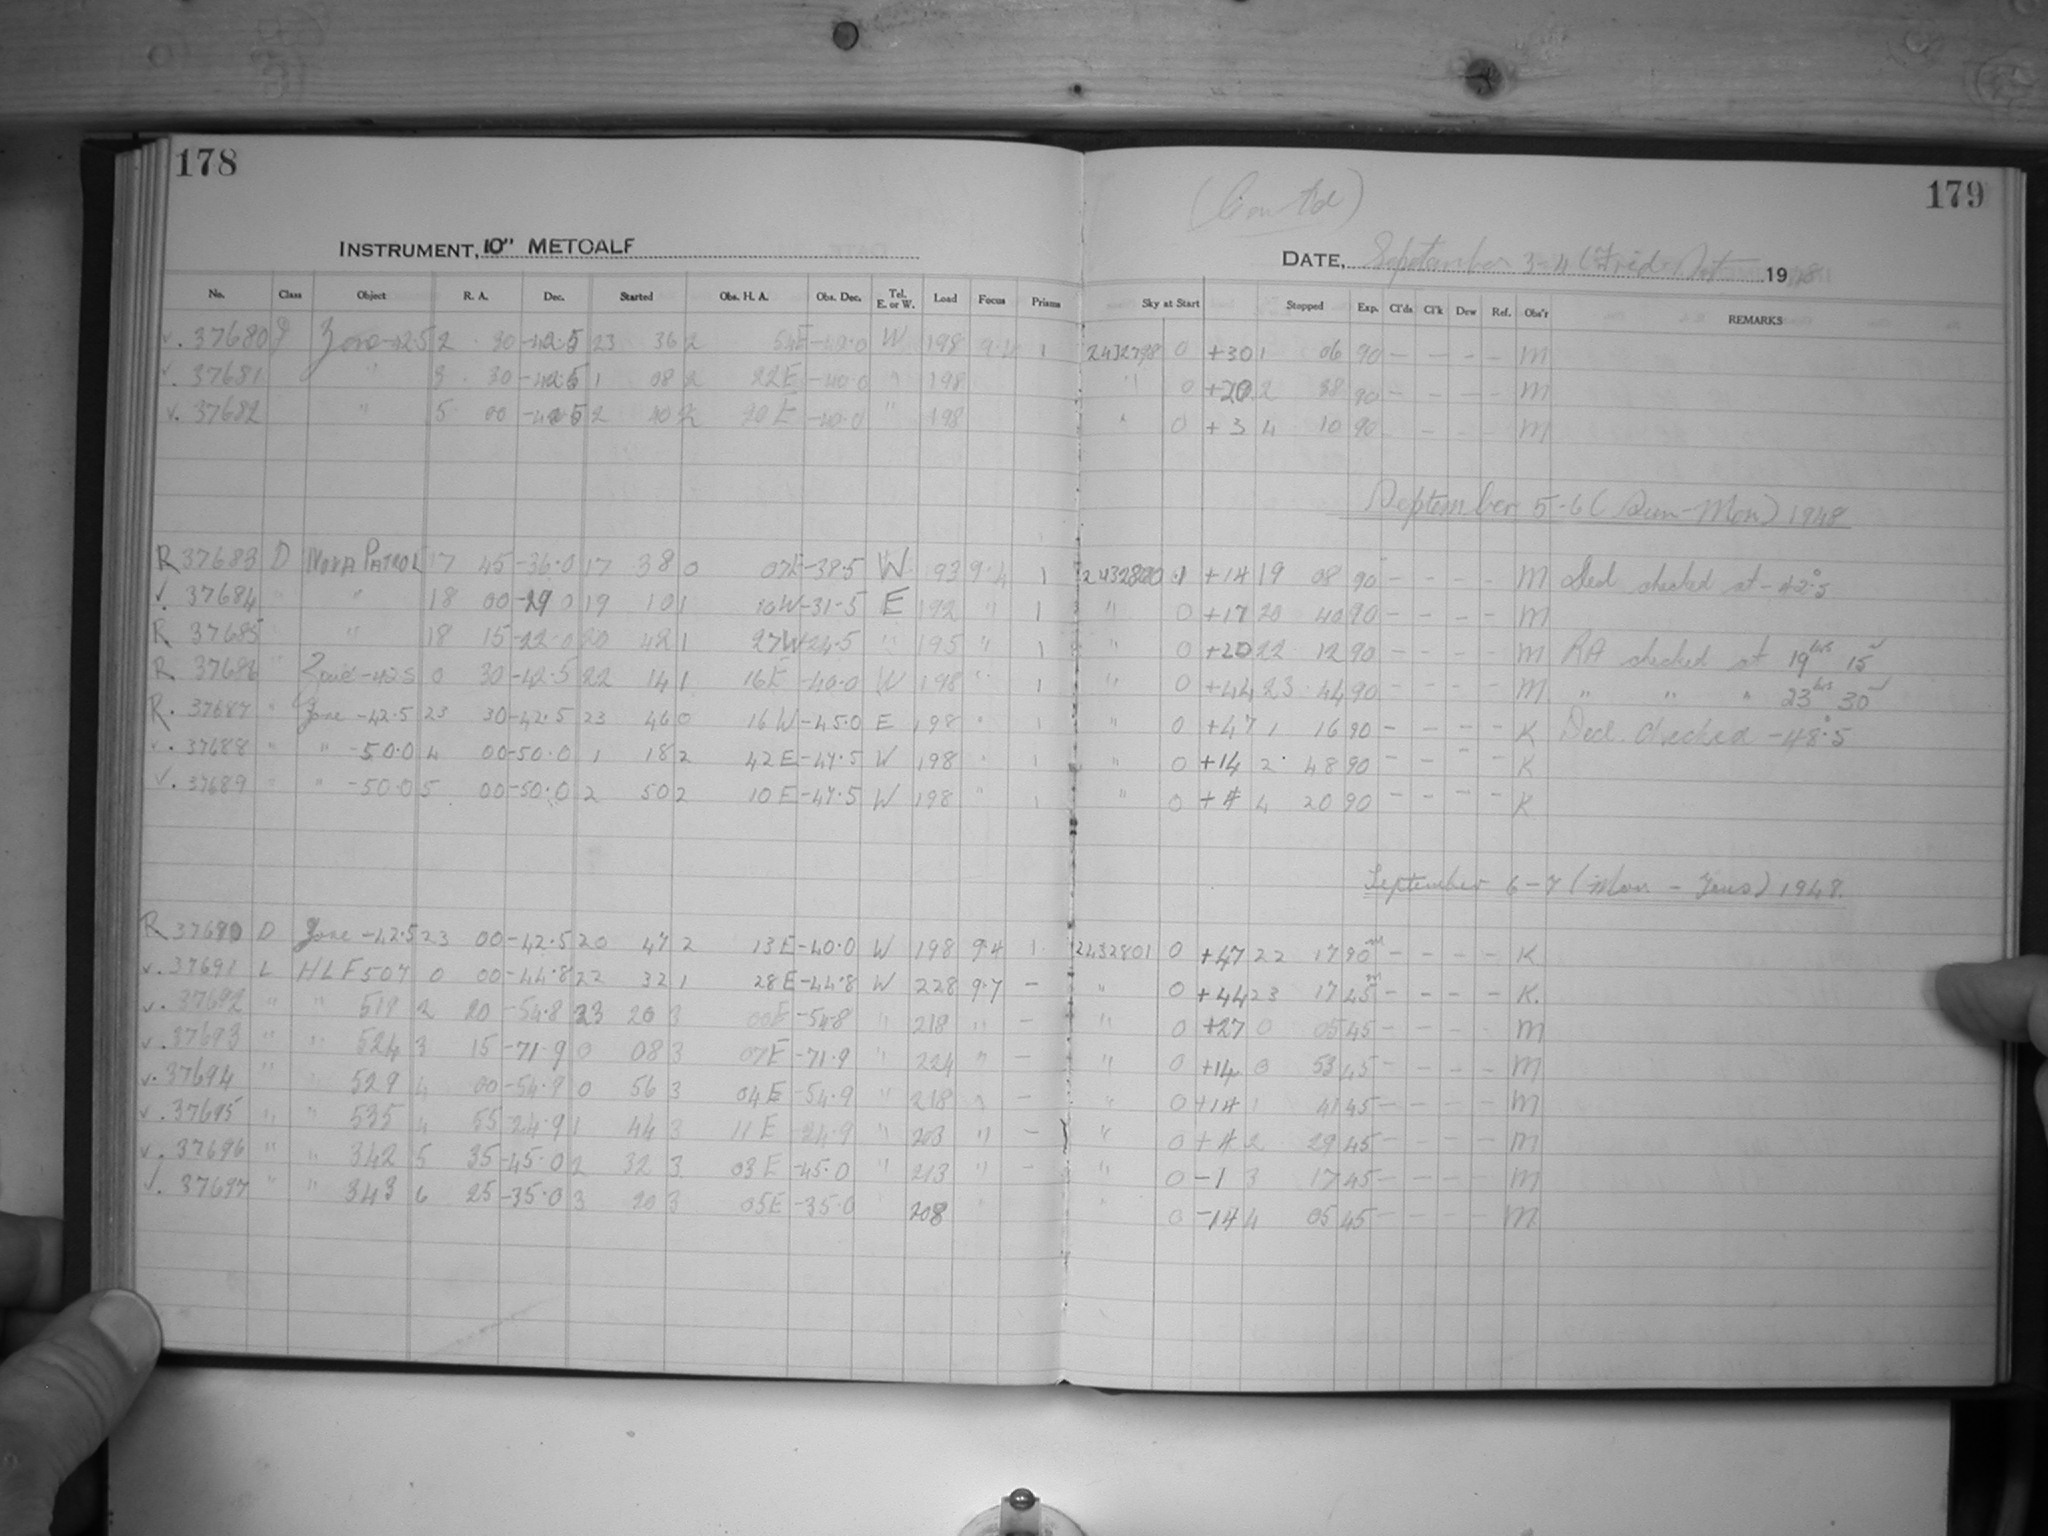 178
179
(Contd)
INSTRUMENT, 10" METCALF
DATE, September 3-4 (Frid-Sat 1948
No. Class Object R. A. Dec. Started Obs. H. A. Obs. Dec. Tel. E. or W. Load Focus Prisms Sky at Start Stopped Exp. Cl'ds Cl'k Dew Ref. Obs'r REMARKS
v. 37680 Zone -42.5 2 30 -42.5 23 36 2 54E -42.0 W 198 9.4 1 2432798 0 +30 1 06 90 - - - - M
v. 37681 " 3 30 -42.5 1 08 2 22E -40.0 " 198 " 0 +20 2 38 90 - - - - M
v. 37682 " 5 00 -42.5 2 40 2 20E -40.0 " 198 " 0 +3 4 10 90 - - - - M
September 5-6 (Sun-Mon) 1948
R 37683 D NOVA PATROL 17 45 -36.0 17 38 0 07E -38.5 W 193 9.4 1 2432800 .1 +14 19 08 90 - - - - M Decl checked at -42°.5
v. 37684 " " 18 00 -29 0 19 10 1 10W -31.5 E 192 " 1 " 0 +17 20 40 90 - - - - M
R 37685 " 18 15 -22.0 20 42 1 27W -24.5 " 195 " 1 " 0 +20 22 12 90 - - - - M RA checked at 19hrs 15
R 37686 " Zone -42.5 0 30 -42.5 22 14 1 16E -40.0 W 198 " 1 " 0 +44 23 44 90 - - - - M " " " 23hrs 30
R. 37687 " Zone -42.5 23 30 -42.5 23 46 0 16W -45.0 E 198 " 1 " 0 +47 1 16 90 - - - - K Decl. checked -48°.5
v. 37688 " " -50.0 4 00 -50.0 1 18 2 42E -47.5 W 198 " 1 " 0 +14 2 48 90 - - - - K
v. 37689 " " -50.0 5 00 -50.0 2 50 2 10E -47.5 W 198 " 1 " 0 +4 4 20 90 - - - - K
September 6-7 (Mon - Tues) 1948.
R 37690 D Zone -42.5 23 00 -42.5 20 47 2 13E -40.0 W 198 9.4 1. 2432801 0 +47 22 17 90m - - - - K
v. 37691 L HLF 507 0 00 -44.8 22 32 1 28E -44.8 W 228 9.7 - " 0 +44 23 17 45m - - - - K.
v. 37692 " " 519 2 20 -54.8 23 20 3 00E -54.8 " 218 " - " 0 +27 0 05 45 - - - - M
v. 37693 " " 524 3 15 -71.9 0 08 3 07E -71.9 " 224 " - " 0 +14 0 53 45 - - - - M
v. 37694 " 529 4 00 -54.9 0 56 3 04E -54.9 " 218 " - " 0 +14 1 41 45 - - - - M
v. 37695 " " 535 4 55 -24.9 1 44 3 11E -24.9 " 203 " - " 0 +4 2 29 45 - - - - M
v. 37696 " " 342 5 35 -45.0 2 32 3 03E -45.0 " 213 " - " 0 -1 3 17 45 - - - - M
v. 37697 " " 343 6 25 -35.0 3 20 3 05E -35.0 208 " " 0 -14 4 05 45 - - - - M